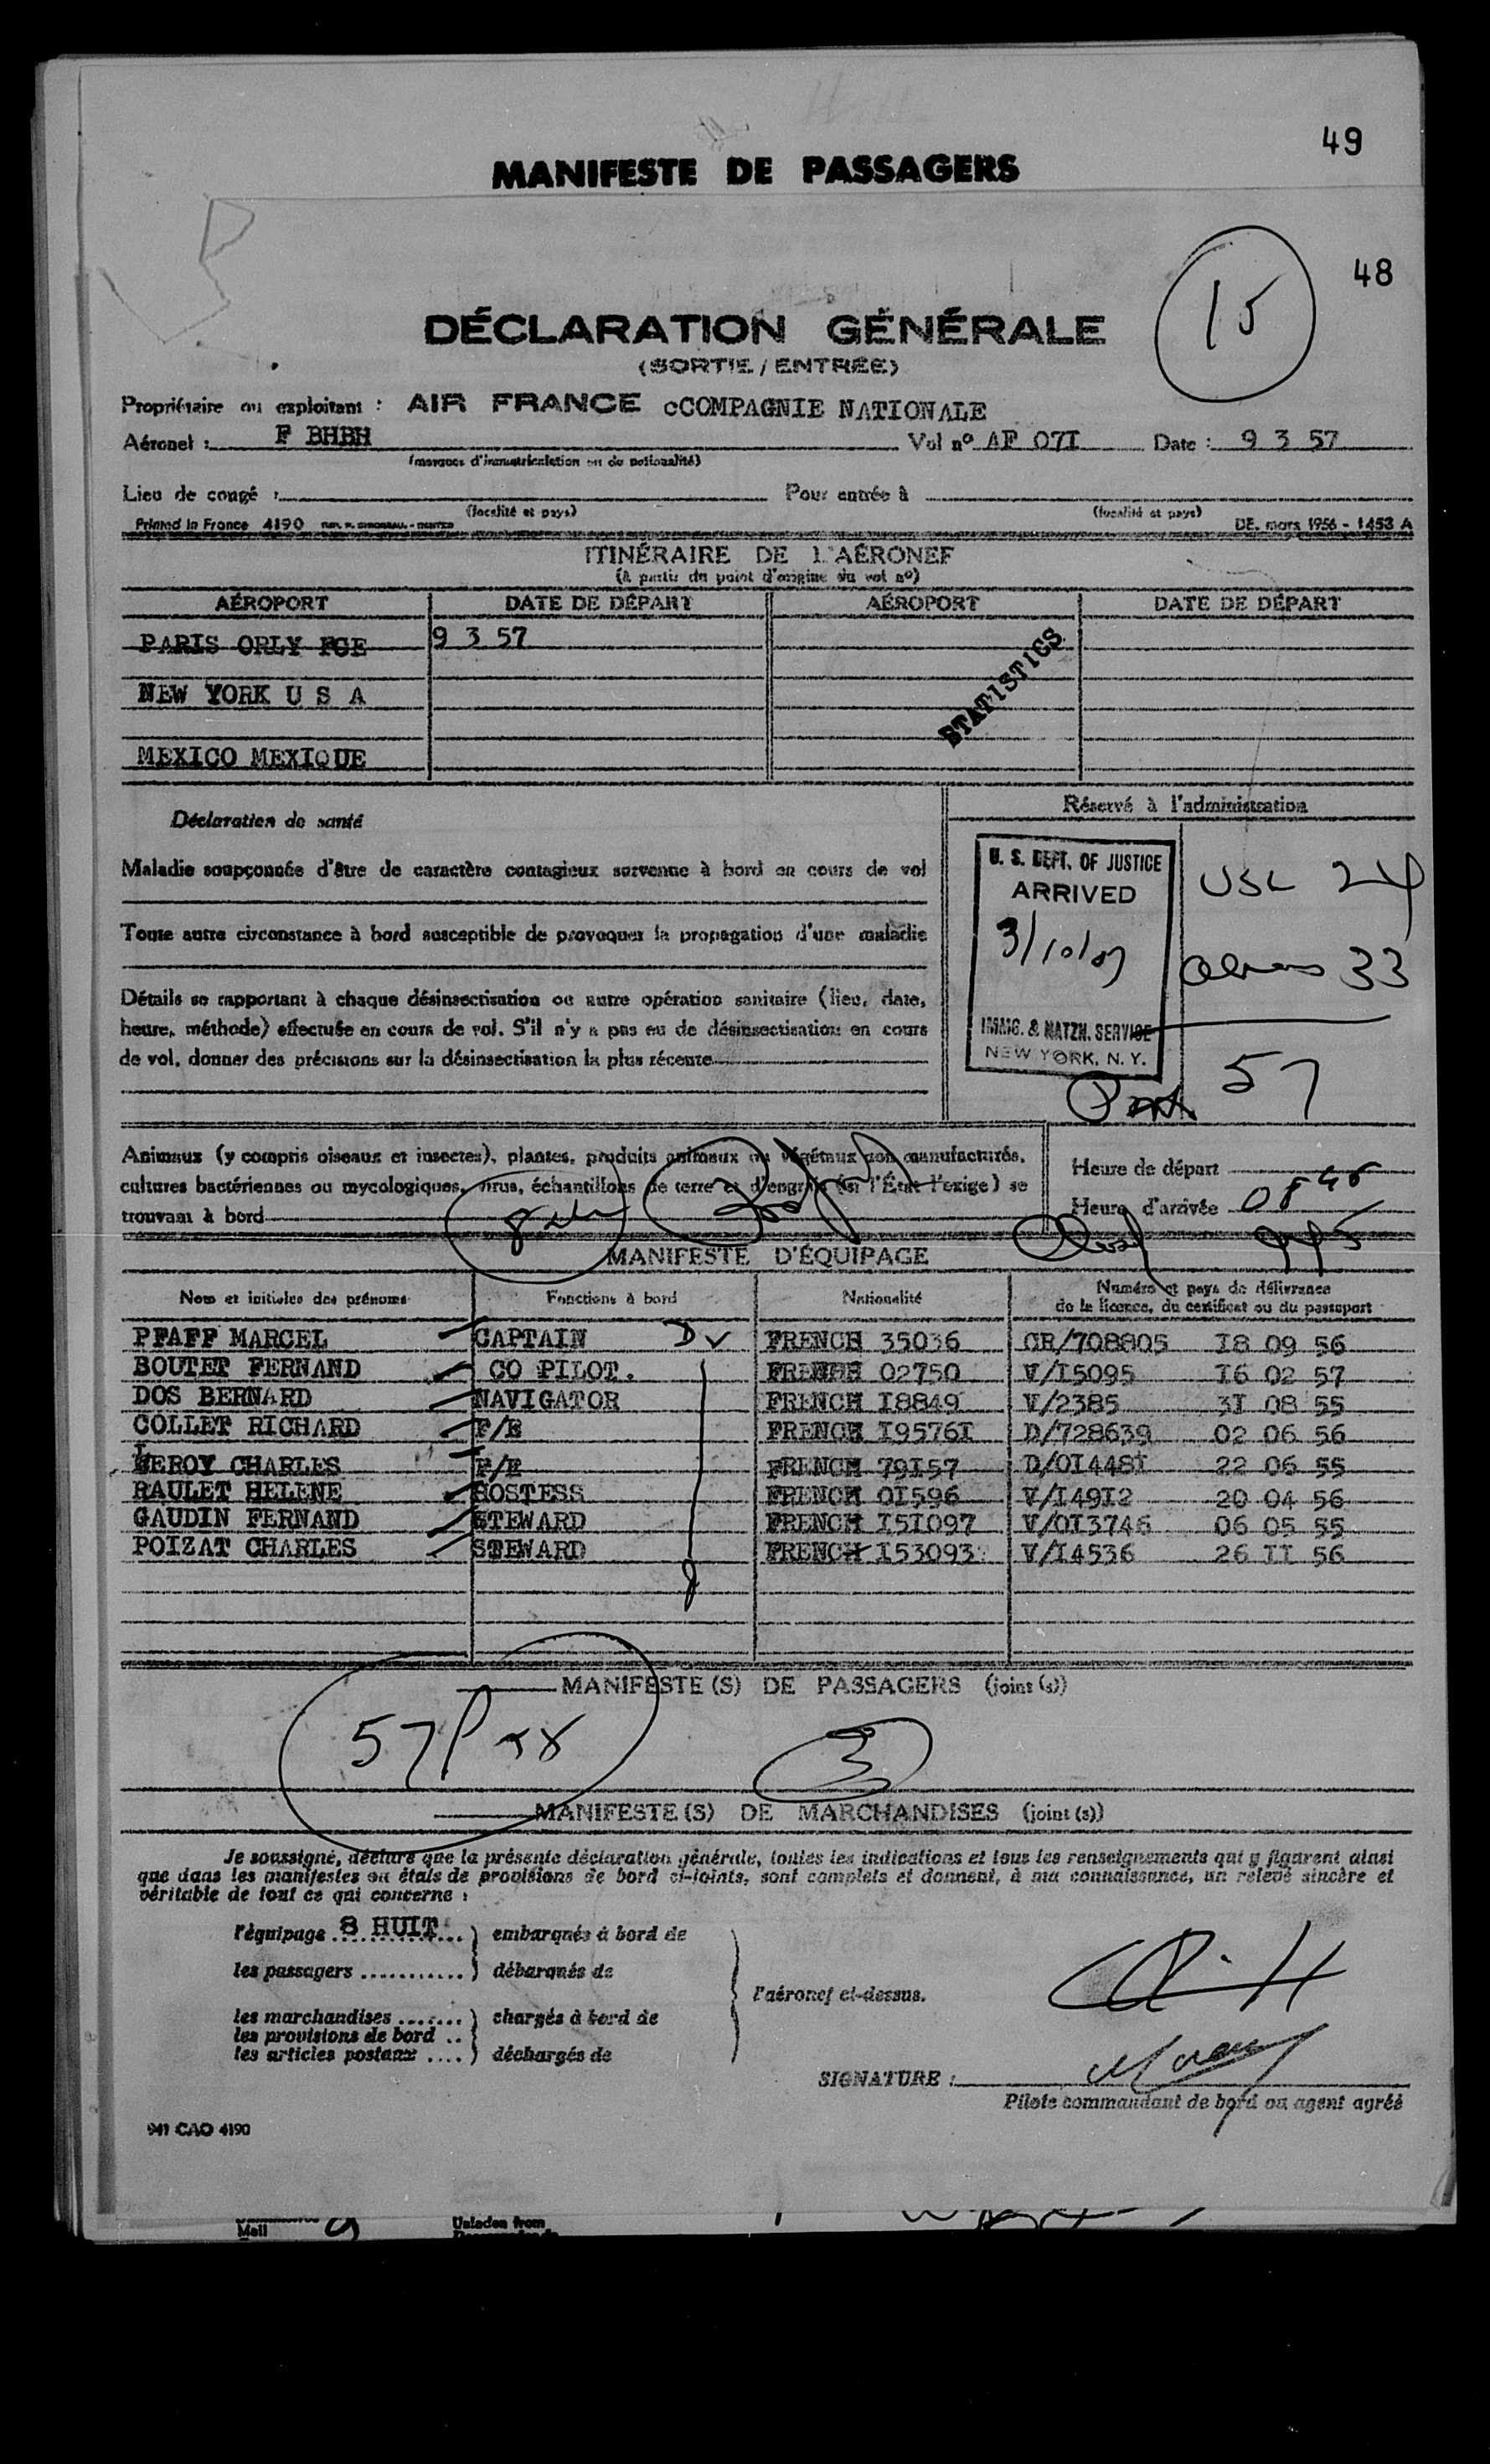 49
MANIFESTE DE PASSAGERS
48
15
DÉCLARATION GÉNÉRALE
(SORTIE / ENTRÉE)
Propriétaire ou exploitant : AIR FRANCE cCOMPAGNIE NATIONALE
Aéronef : F BHBH Vol nº AF 07I Date : 9 3 57
(marques d'immatriculation ou de nationalité)
Lieu de congé : Pour entrée à
(localité et pays) (localité et pays)
Printed in France 4190 DE. mars 1956 - 1453 A
ITINÉRAIRE DE L'AÉRONEF
(à partir du point d'origine du vol nº)
AÉROPORT DATE DE DÉPART AÉROPORT DATE DE DÉPART
PARIS ORLY FCE 9 3 57
STATISTICS
NEW YORK U S A
MEXICO MEXIQUE
Réservé à l'administration
Déclaration de santé
Maladie soupçonnée d'être de caractère contagieux survenue à bord en cours de vol
Toute autre circonstance à bord susceptible de provoquer la propagation d'une maladie
Détails se rapportant à chaque désinsectisation ou autre opération sanitaire (lieu, date,
heure, méthode) effectuée en cours de vol. S'il n'y a pas eu de désinsectisation en cours
de vol, donner des précisions sur la désinsectisation la plus récente
U. S. DEPT. OF JUSTICE
ARRIVED
3/10/57
IMMG. & NATZN. SERVICE
NEW YORK, N. Y.
USC 24
33
57
Animaux (y compris oiseaux et insectes), plantes, produits animaux ou végétaux non manufacturés,
cultures bactériennes ou mycologiques, virus, échantillons de terre et d'engrais (si l'État l'exige) se
trouvant à bord
Heure de départ
Heure d'arrivée
MANIFESTE D'ÉQUIPAGE
Nom et initiales des prénoms Fonctions à bord Nationalité Numéro et pays de délivrance
de la licence, du certificat ou du passeport
PFAFF MARCEL CAPTAIN FRENCH 35036 CR/708805 I8 09 56
BOUTET FERNAND CO PILOT. FRENCH 02750 V/I5095 I6 02 57
DOS BERNARD NAVIGATOR FRENCH I8849 V/2385 3I 08 55
COLLET RICHARD F/E FRENCH I9576I D/728639 02 06 56
LEROY CHARLES F/E FRENCH 79I57 D/OI448I 22 06 55
RAULET HELENE HOSTESS FRENCH OI596 V/I49I2 20 04 56
GAUDIN FERNAND STEWARD FRENCH I5I097 V/OI3746 06 05 55
POIZAT CHARLES STEWARD FRENCH I53093 V/I4536 26 II 56
MANIFESTE (S) DE PASSAGERS (joint (s))
57 Pax
3
MANIFESTE (S) DE MARCHANDISES (joint (s))
Je soussigné, déclare que la présente déclaration générale, toutes les indications et tous les renseignements qui y figurent ainsi
que dans les manifestes ou états de provisions de bord ci-joints, sont complets et donnent, à ma connaissance, un relevé sincère et
véritable de tout ce qui concerne :
l'équipage 8 HUIT ) embarqués à bord de
les passagers ........... ) débarqués de
l'aéronef ci-dessus.
les marchandises ....... ) chargés à bord de
les provisions de bord ..
les articles postaux .... ) déchargés de
SIGNATURE :
Pilote commandant de bord ou agent agréé
941 CAO 4190
Mail Unladen from